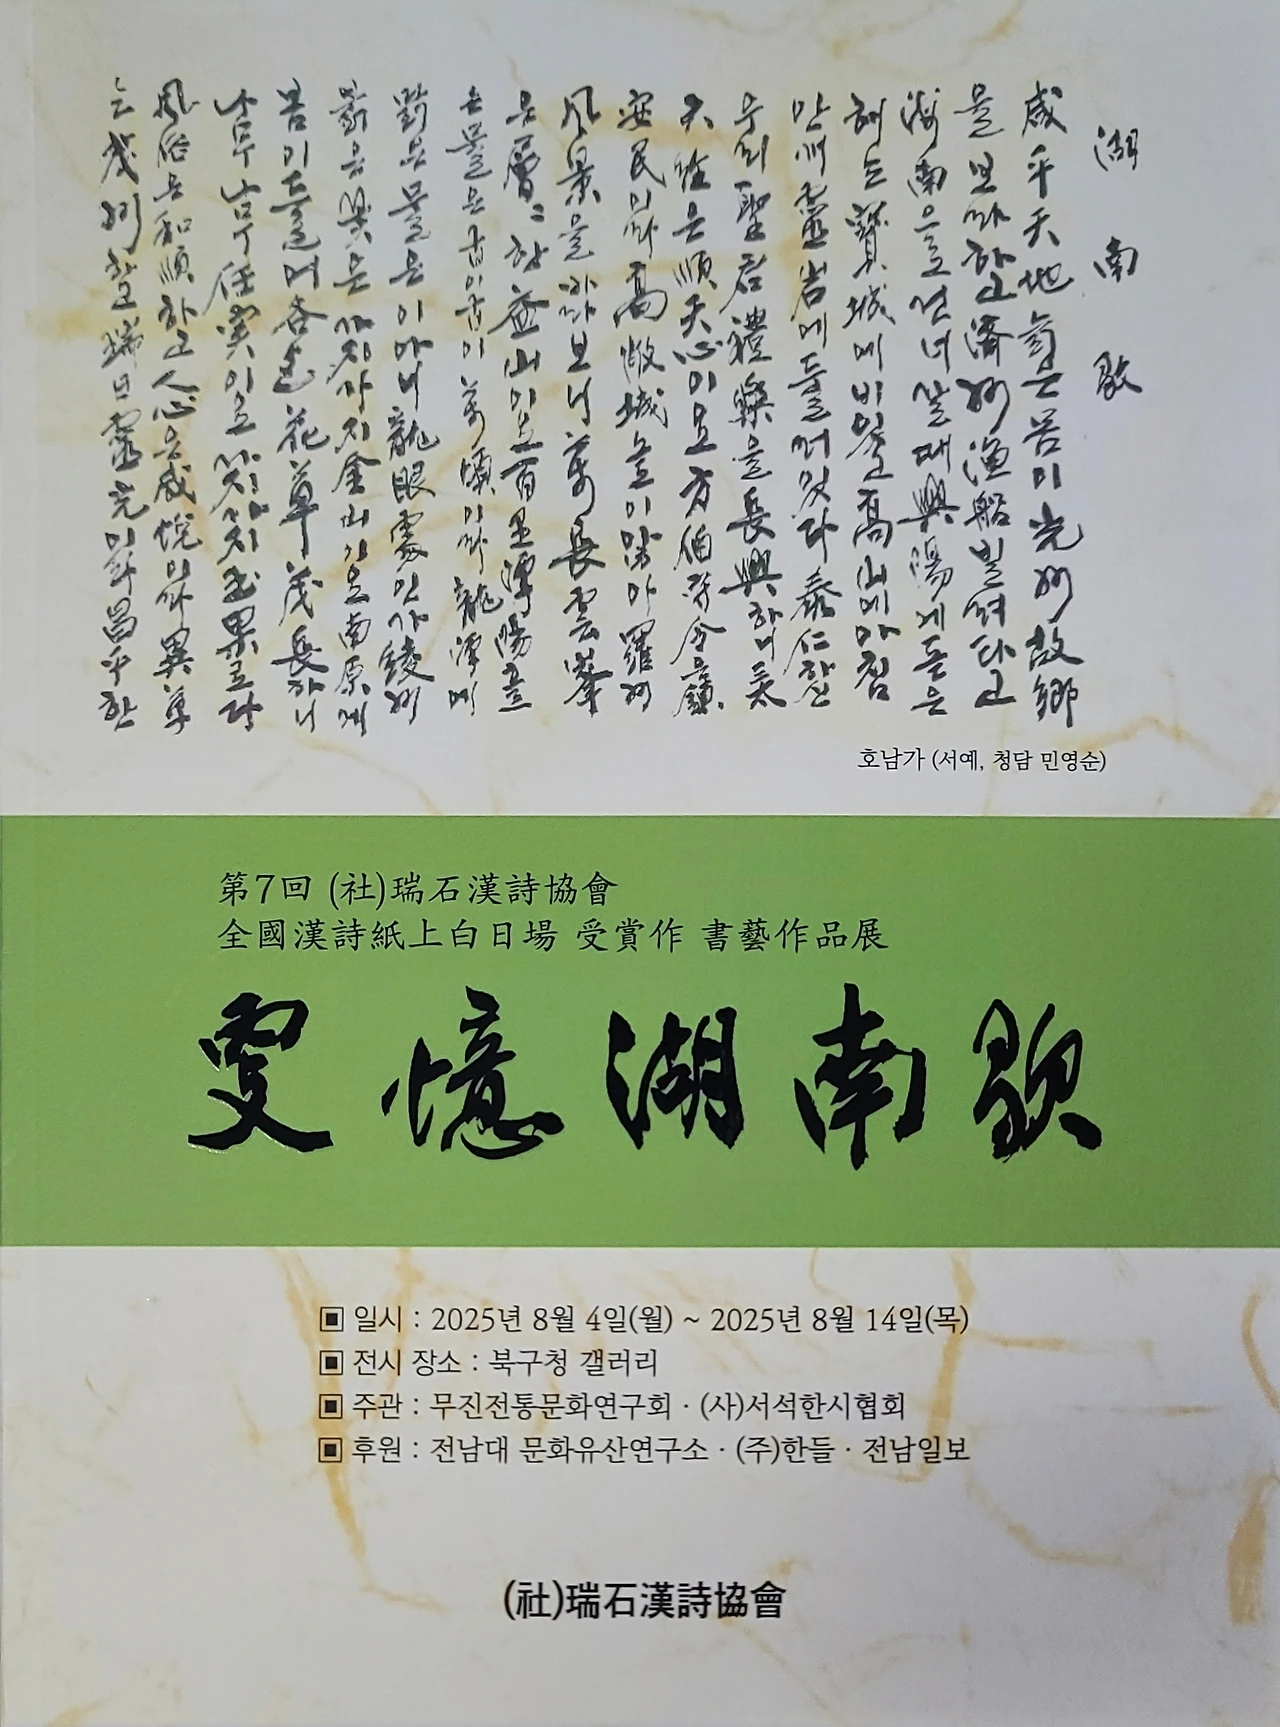 湖南歌
咸平天地 늙은 몸이 光州故鄕
을 보랴하고 濟州漁船 빌려타고
海南으로 건너갈 때 興陽에 돋은
해는 寶城에 비쳐있고 高山에 아침
안개 靈岩에 둘러있다 泰仁하신
우리 聖君 禮樂을 長興하니
安民이라 高敞城 높이 앉아 羅州
風景을 바라보니 萬長雲峯
은 層〻한 益山이요 百里潭陽 흐르
는 물은 굽이굽이 萬頃이라 龍潭에
맑은 물은 이 아니 龍眼處인가 綾州
붉은 꽃은 金山이요 南原에
봄이 들어 各色 花草 茂長하니
나무나무 任實이요 가지가지 玉果로다
風俗은 和順하고 人心은 咸悅이라 異草
는 茂州하고 瑞日靈光이라 昌平한
호남가 (서예, 청담 민영순)
第7回 (社)瑞石漢詩協會
全國漢詩紙上白日場 受賞作 書藝作品展
憶湖南歌
▣ 일시 : 2025년 8월 4일(월) ~ 2025년 8월 14일(목)
▣ 전시 장소 : 북구청 갤러리
▣ 주관 : 무진전통문화연구회 · (사)서석한시협회
▣ 후원 : 전남대 문화유산연구소 · (주)한들 · 전남일보
(社)瑞石漢詩協會